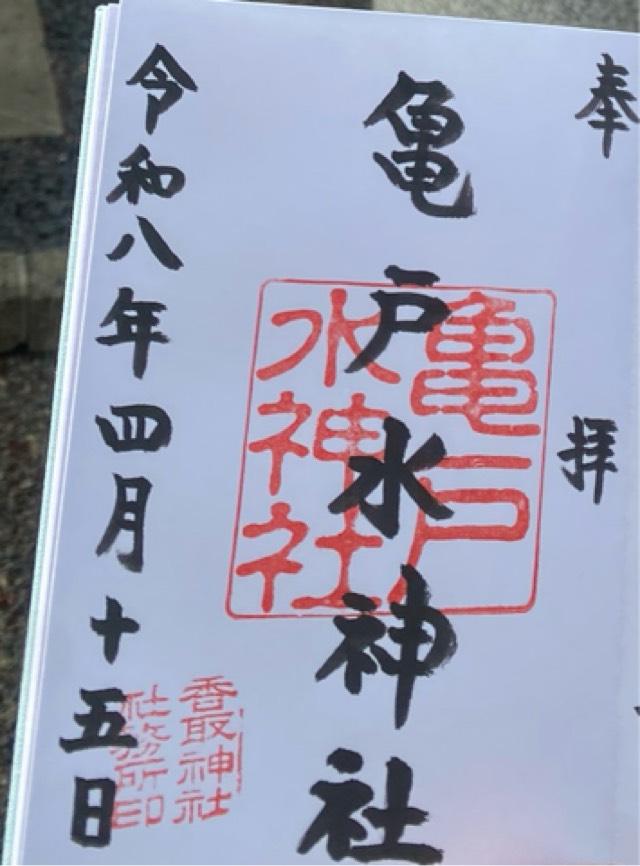 奉拝
亀戸水神社
亀戸
水神社
令和八年四月十五日
香取神社
社務所印